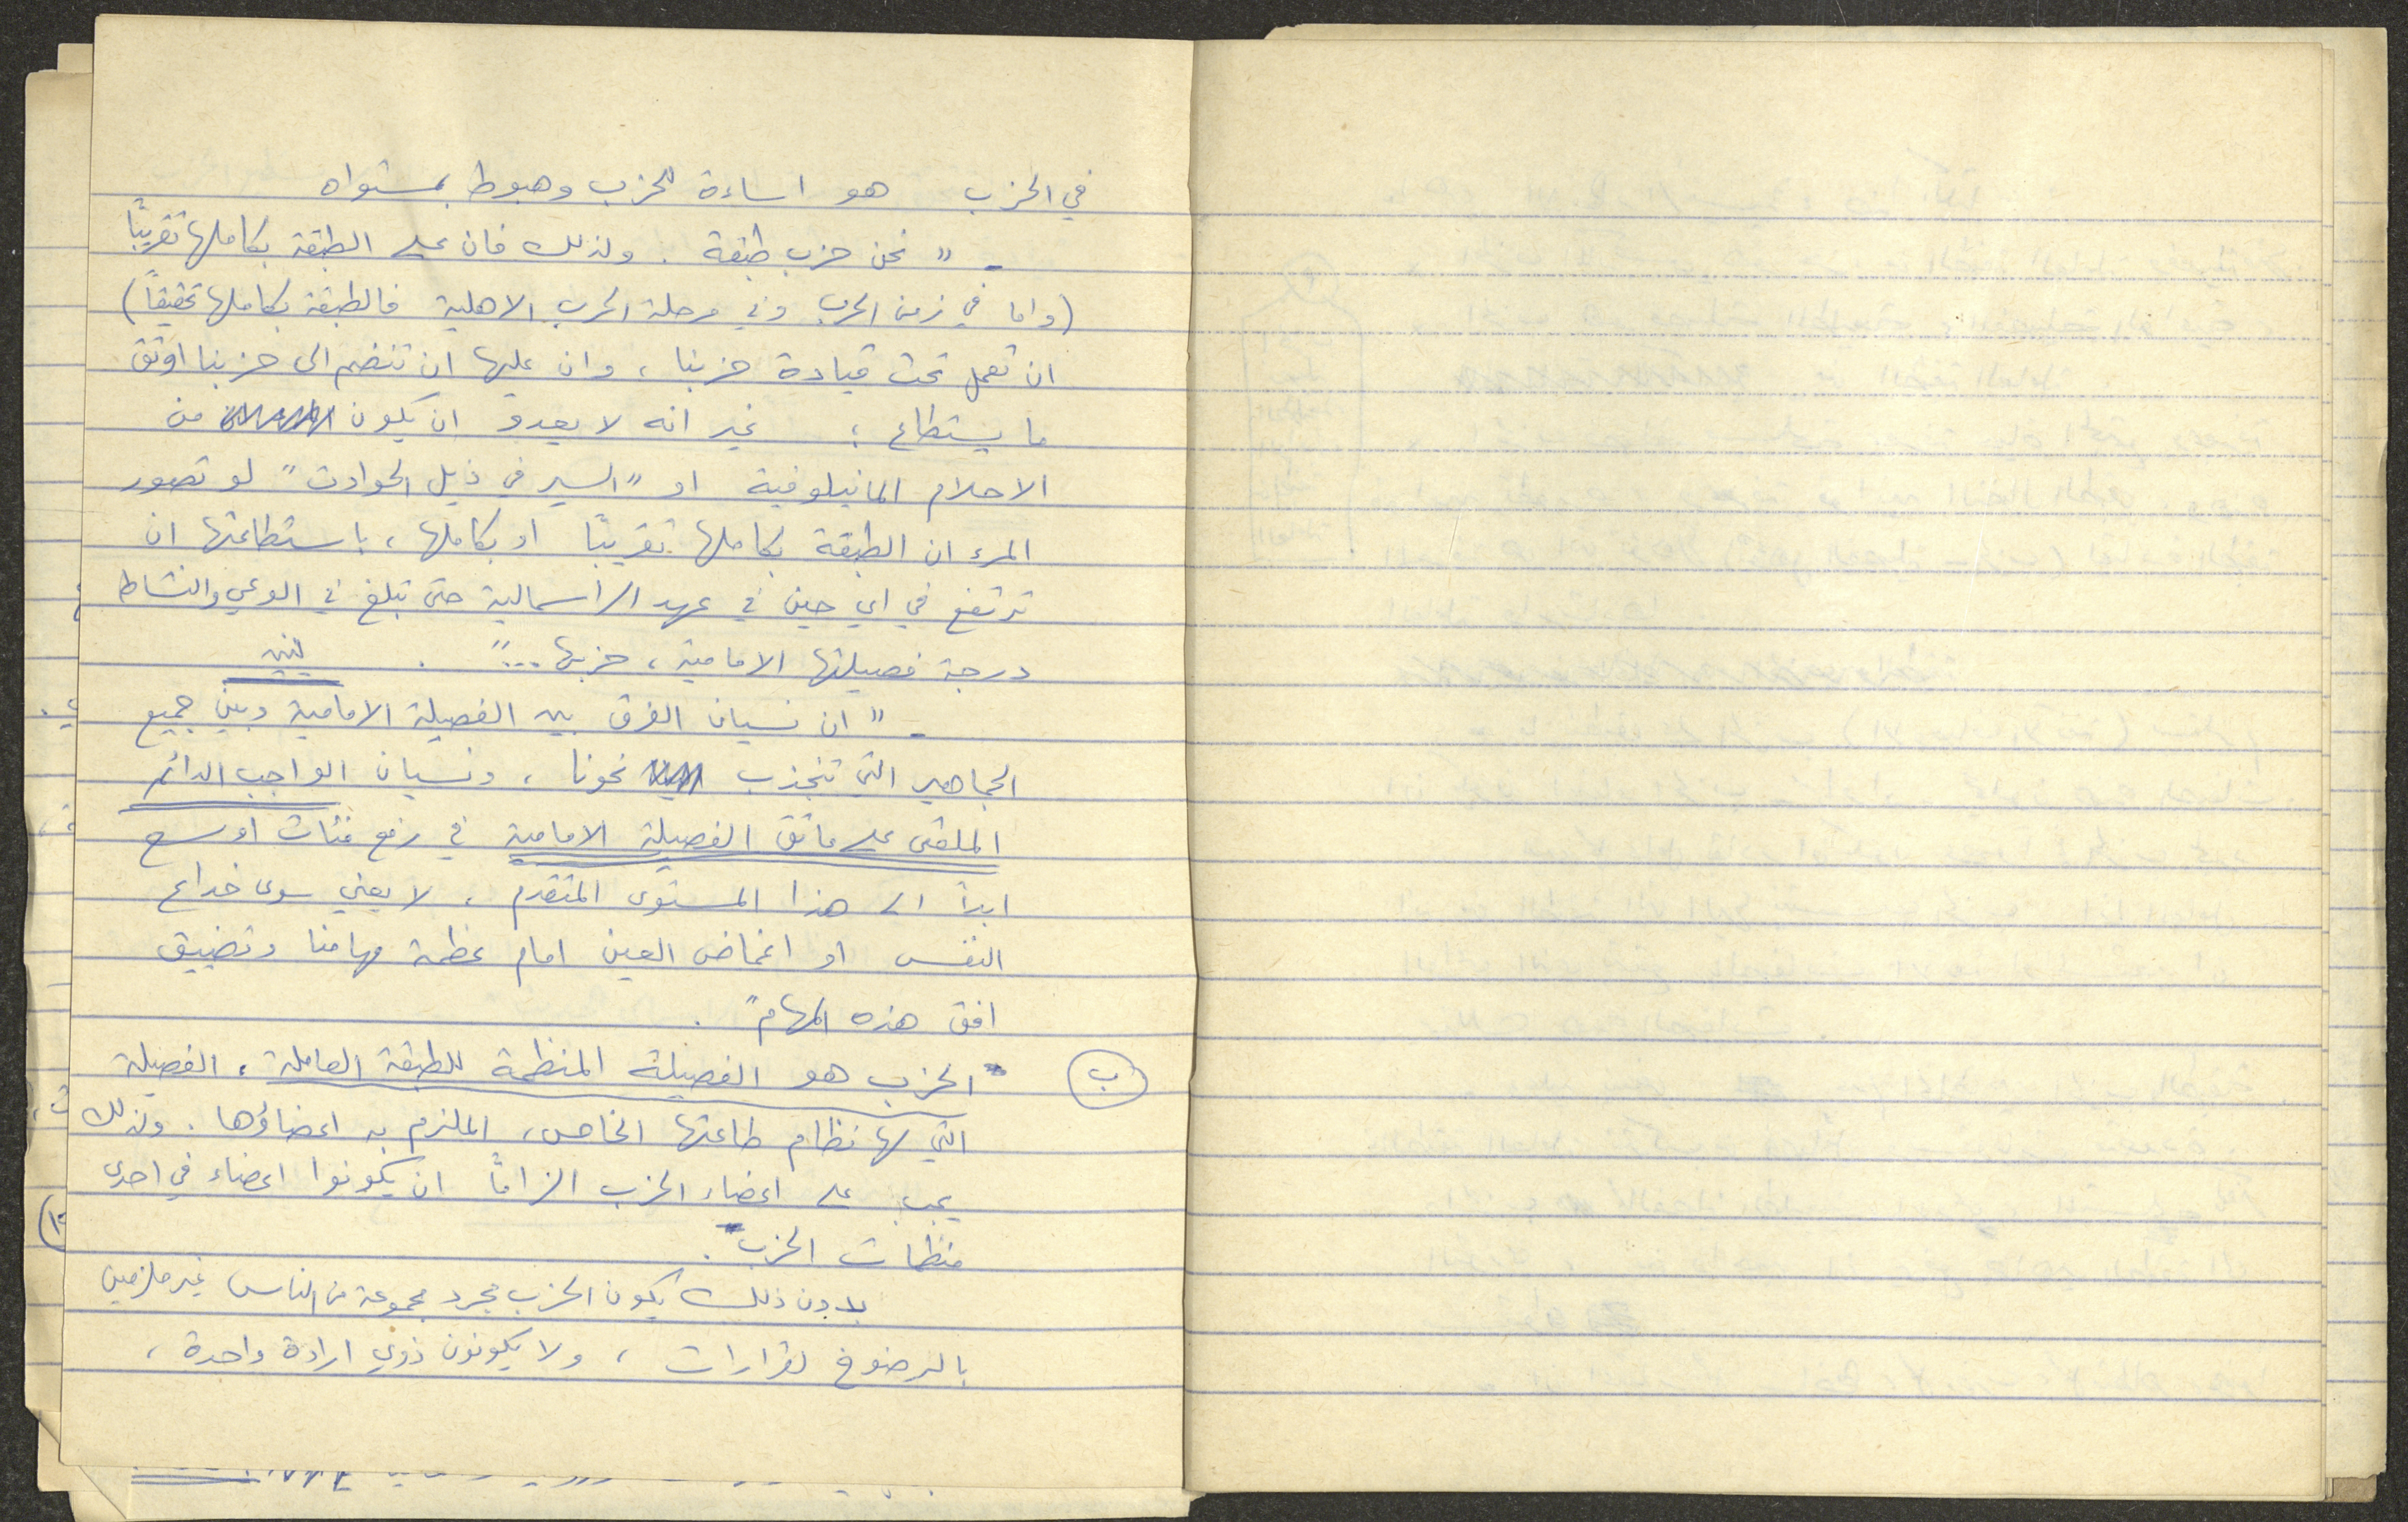 في الحزب هو اساءة للحزب وهبوط بمستواه
- " نحن حزب طبقة . ولذلك فان على الطبقة بكاملها تقريبًا
(واما في زمن الحرب وفي مرحلة الحرب الاهلية فالطبقة بكاملها تحقيقاً)
ان تعمل تحت قيادة حزبنا ، وان عليها ان تنضم الى حزبنا اوثق
ما يستطاع ؛ غير انه لا يعدو ان يكون من
الاحلام المانيلوفية او "السير في ذيل الحوادث" لو تصور
المرء ان الطبقة بكاملها تقريبًا او بكاملها ، باستطاعتها ان
ترتفع في اي حين في عهد الراسمالية حتى تبلغ في الوعي والنشاط
درجة فصيلتها الامامية ، حزبها ..." . لينين
- " ان نسيان الفرق بين الفصيلة الامامية وبين جميع
الجماهير التي تنجذب نحونا ، ونسيان الواجب الدائم
الملقى على عاتق الفصيلة الامامية في رفع فئات اوسع
ابدا الى هذا المستوى المتقدم ، لا يعني سوى خداع
النفس او اغماض العين امام عظمة مهامنا وتضييق
افق هذه المهام" .
ب الحزب هو الفصيلة المنظمة للطبقة العاملة ، الفصيلة
التي لها نظام طاعتها الخاص ، الملزم به اعضاؤها . ولذلك
يجب على اعضاء الحزب الزامًا ان يكونوا اعضاء في احدى
منظمات الحزب .
بدون ذلك يكون الحزب مجرد مجموعة من الناس غير ملزمين
بالرضوخ لقرارات ، ولا يكونون ذوي ارادة واحدة ،